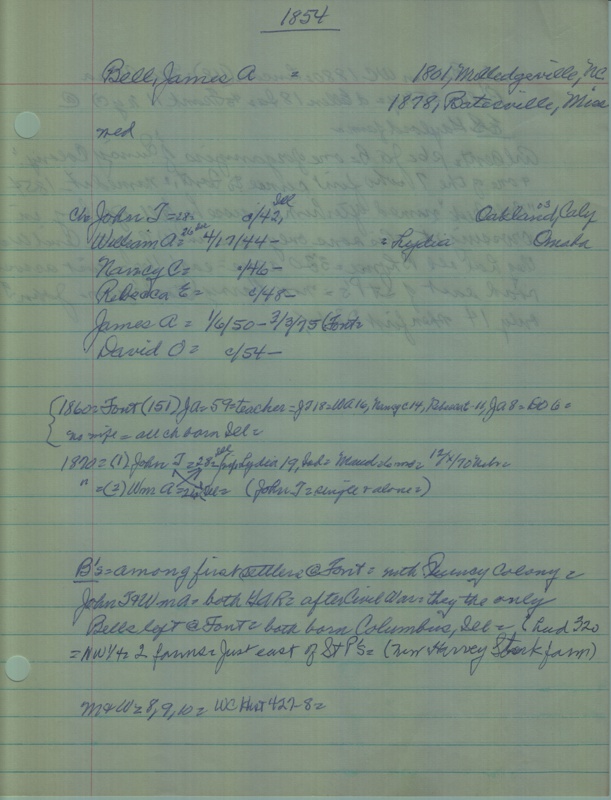 1854
Bell, James A = 1801, Milledgeville, NC
1878, Batesville, Miss
med
Ch= John T =28= c/42, Ill Oakland, 03 Caly
William A = 4/17/44- = Lydia Omaha
Nancy C = c/46-
Rebecca E = c/48-
James A = 1/6/50 - 3/3/75 (Font=
David O = c/54-
1860= Font (151) JA=59=teacher= JT 18= WA 16, Nancy C 14, 11, JA 8= DO 6=
no wife = all ch born Ill=
1870= (1) John T =28= Ill Lydia 19, Ind= Maud 10mo= Neb=
" =(3) Wm A = Ill= (John T= single & alone=)
B's= among first settlers @ Font= with Quincy Colony=
John T & Wm A= both GAR= after Civil War= they the only
Bells left @ Font= both born Columbus, Ill= & had 320
=NW¼= 2 farms= Just east of St P's= (now Harvey Stork farm)
M&W= 8, 9, 10= WC Hist 427-8=